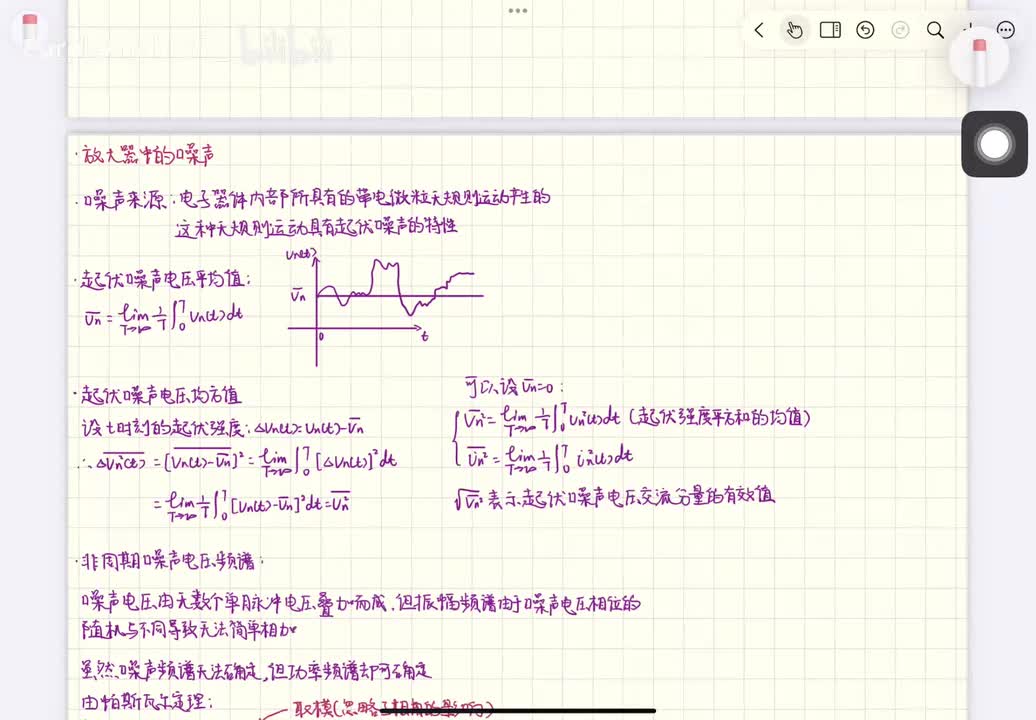 ·放大器中的噪声
·噪声来源:电子器件内部所具有的带电微粒无规则运动产生的
这种无规则运动具有起伏噪声的特性
Un(t)
·起伏噪声电压平均值:
U̅n
U̅n = lim T→∞ 1/T ∫₀ᵀ Un(t)dt
0
t
·起伏噪声电压均方值
设t时刻的起伏强度:ΔUn(t)=Un(t)-U̅n
∴ \overline{ΔUn²(t)} = \overline{[Un(t)-U̅n]²} = lim T→∞ 1/T ∫₀ᵀ [ΔUn(t)]²dt
= lim T→∞ 1/T ∫₀ᵀ [Un(t)-U̅n]²dt = \overline{Un²}
可以设U̅n=0:
\overline{Un²} = lim T→∞ 1/T ∫₀ᵀ Un²(t)dt (起伏强度平方和的均值)
\overline{in²} = lim T→∞ 1/T ∫₀ᵀ in²(t)dt
√\overline{Un²} 表示起伏噪声电压交流分量的有效值
·非周期噪声电压频谱:
噪声电压由无数个单脉冲电压叠加而成,但振幅频谱由于噪声电压相位的
随机与不同导致无法简单相加
虽然噪声频谱无法确定,但功率频谱却可确定
由帕斯瓦尔定理:
取模(忽略了相角的影响)